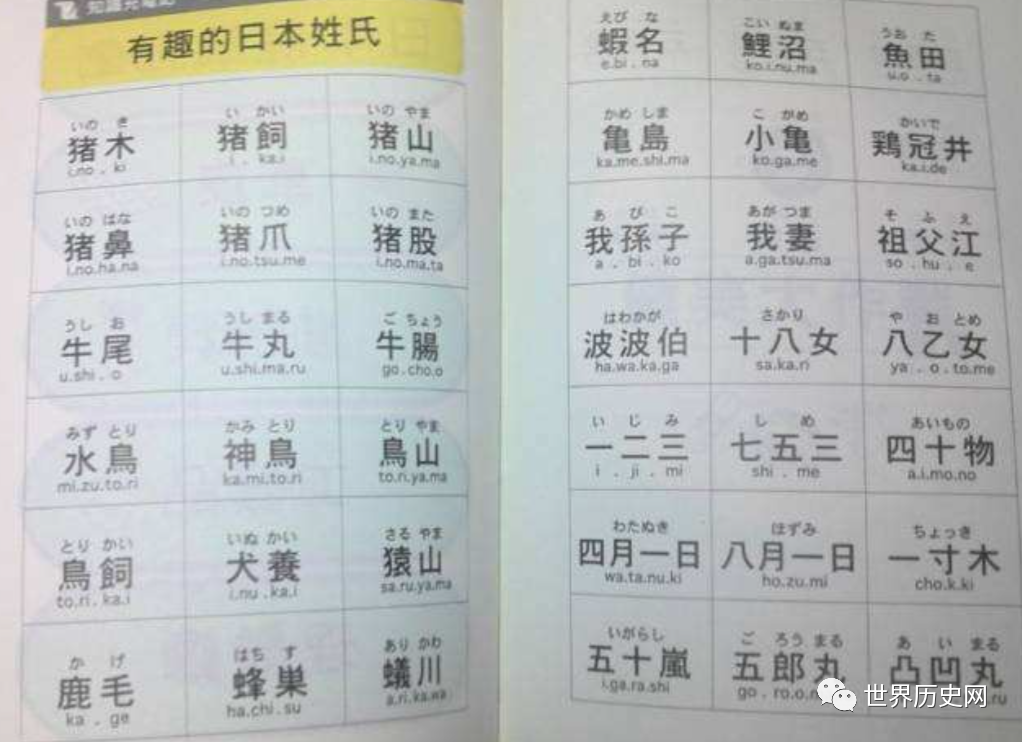 知識充電記
有趣的日本姓氏
いの き いかい いの やま
猪木 猪飼 猪山
i.no . ki i . ka.i i.no.ya.ma
いの はな いの つめ いの また
猪鼻 猪爪 猪股
i.no.ha.na i.no.tsu.me i.no.ma.ta
うし お うし まる ご ちょう
牛尾 牛丸 牛腸
u.shi . o u.shi.ma.ru go.cho.o
みず とり かみ とり とり やま
水鳥 神鳥 鳥山
mi.zu.to.ri ka.mi.to.ri to.ri.ya.ma
とり かい いぬ かい さる やま
鳥飼 犬養 猿山
to.ri.ka.i i.nu.ka.i sa.ru.ya.ma
か げ はち す あり かわ
鹿毛 蜂巣 蟻川
ka . ge ha.chi.su a.ri.ka.wa
えび な こい ぬま うお た
蝦名 鯉沼 魚田
e.bi . na ko.i.nu.ma u.o . ta
かめ しま こ がめ かいで
亀島 小亀 鶏冠井
ka.me.shi.ma ko.ga.me ka.i.de
あ び こ あが つま そ ふ え
我孫子 我妻 祖父江
a . bi . ko a.ga.tsu.ma so . hu . e
はわかが さかり や お とめ
波波伯 十八女 八乙女
ha.wa.ka.ga sa.ka.ri ya . o . to.me
い じ み し め あいもの
一二三 七五三 四十物
i . ji . mi shi . me a.i.mo.no
わたぬき ほずみ ちょっき
四月一日 八月一日 一寸木
wa.ta.nu.ki ho.zu.mi cho.k.ki
いがらし ご ろう まる あ い まる
五十嵐 五郎丸 凸凹丸
i.ga.ra.shi go . ro.o. ru
世界历史网